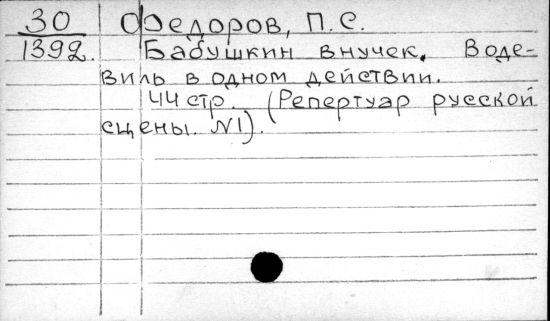 30 Федоров, П. С.
1392. Бабушкин внучек. Воде-
виль в одном действии.
44 стр. (Репертуар русской
сцены. №1).